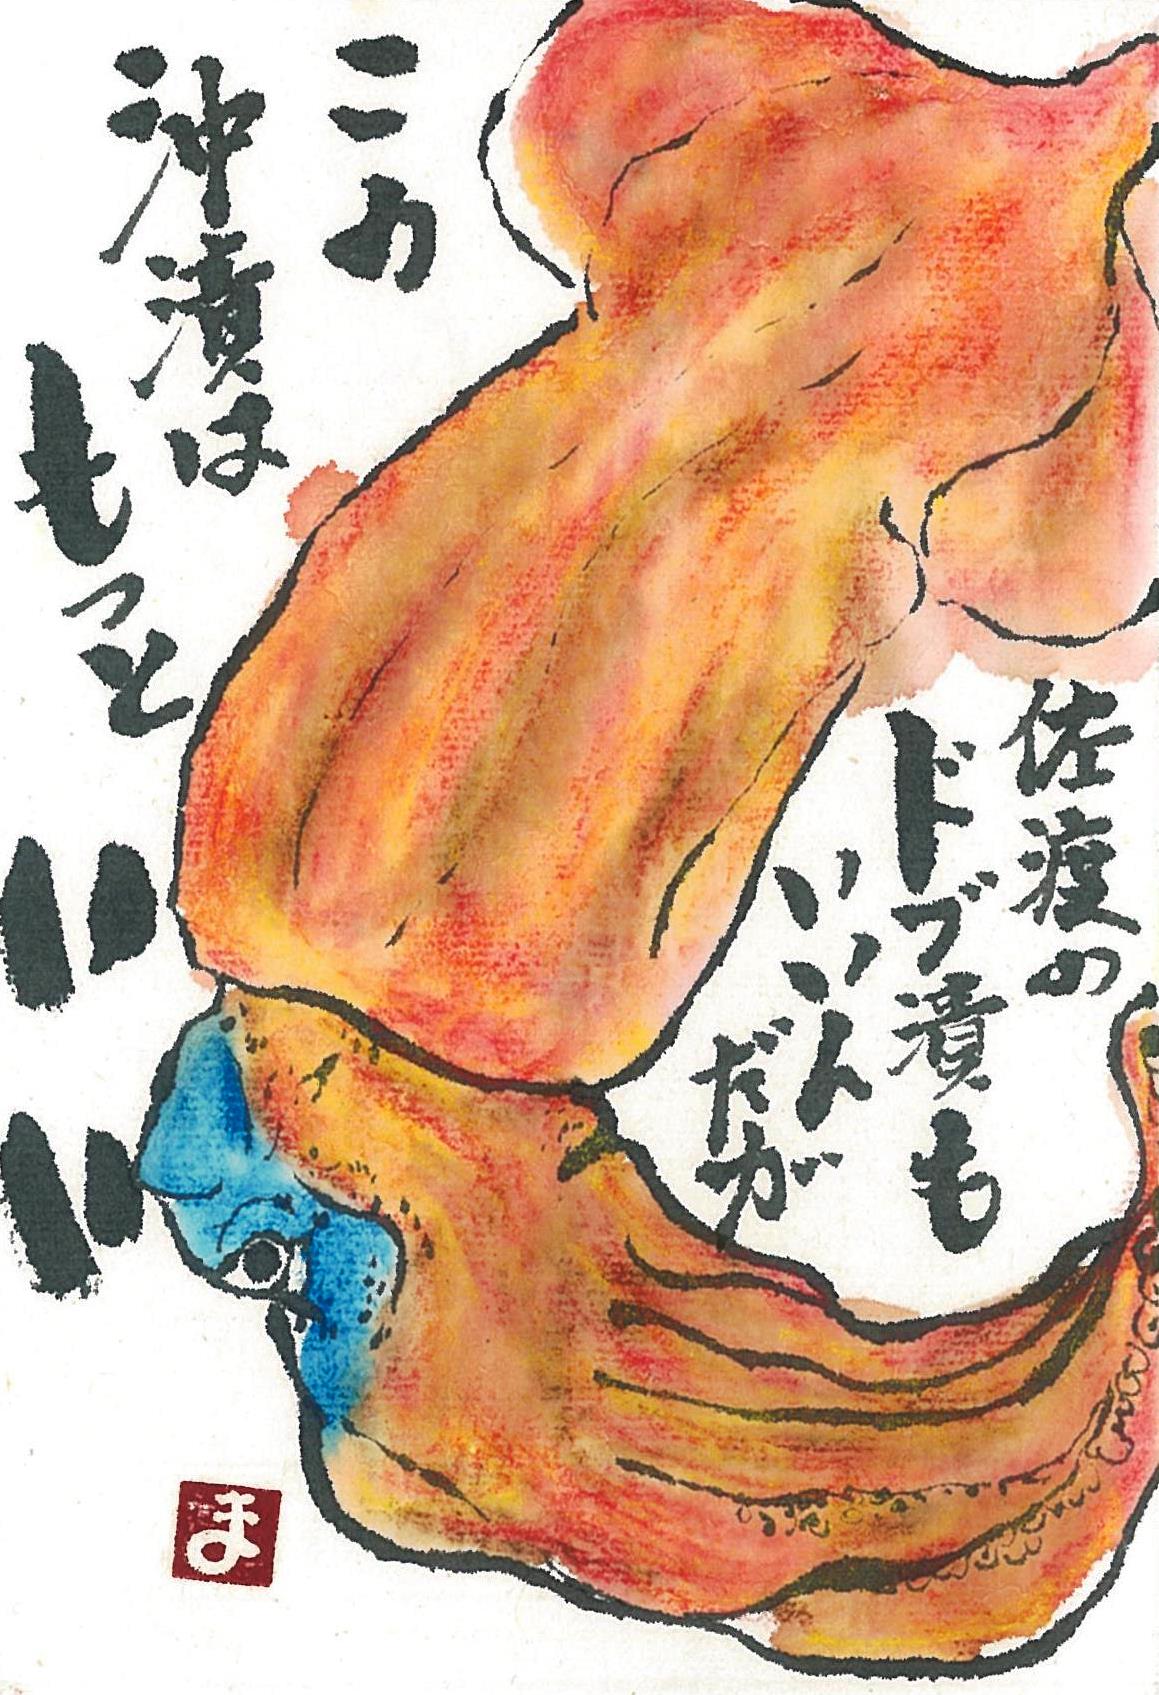 佐渡の
ドブ漬も
いいんだ
が
この
沖漬は
もっと
いい
ま